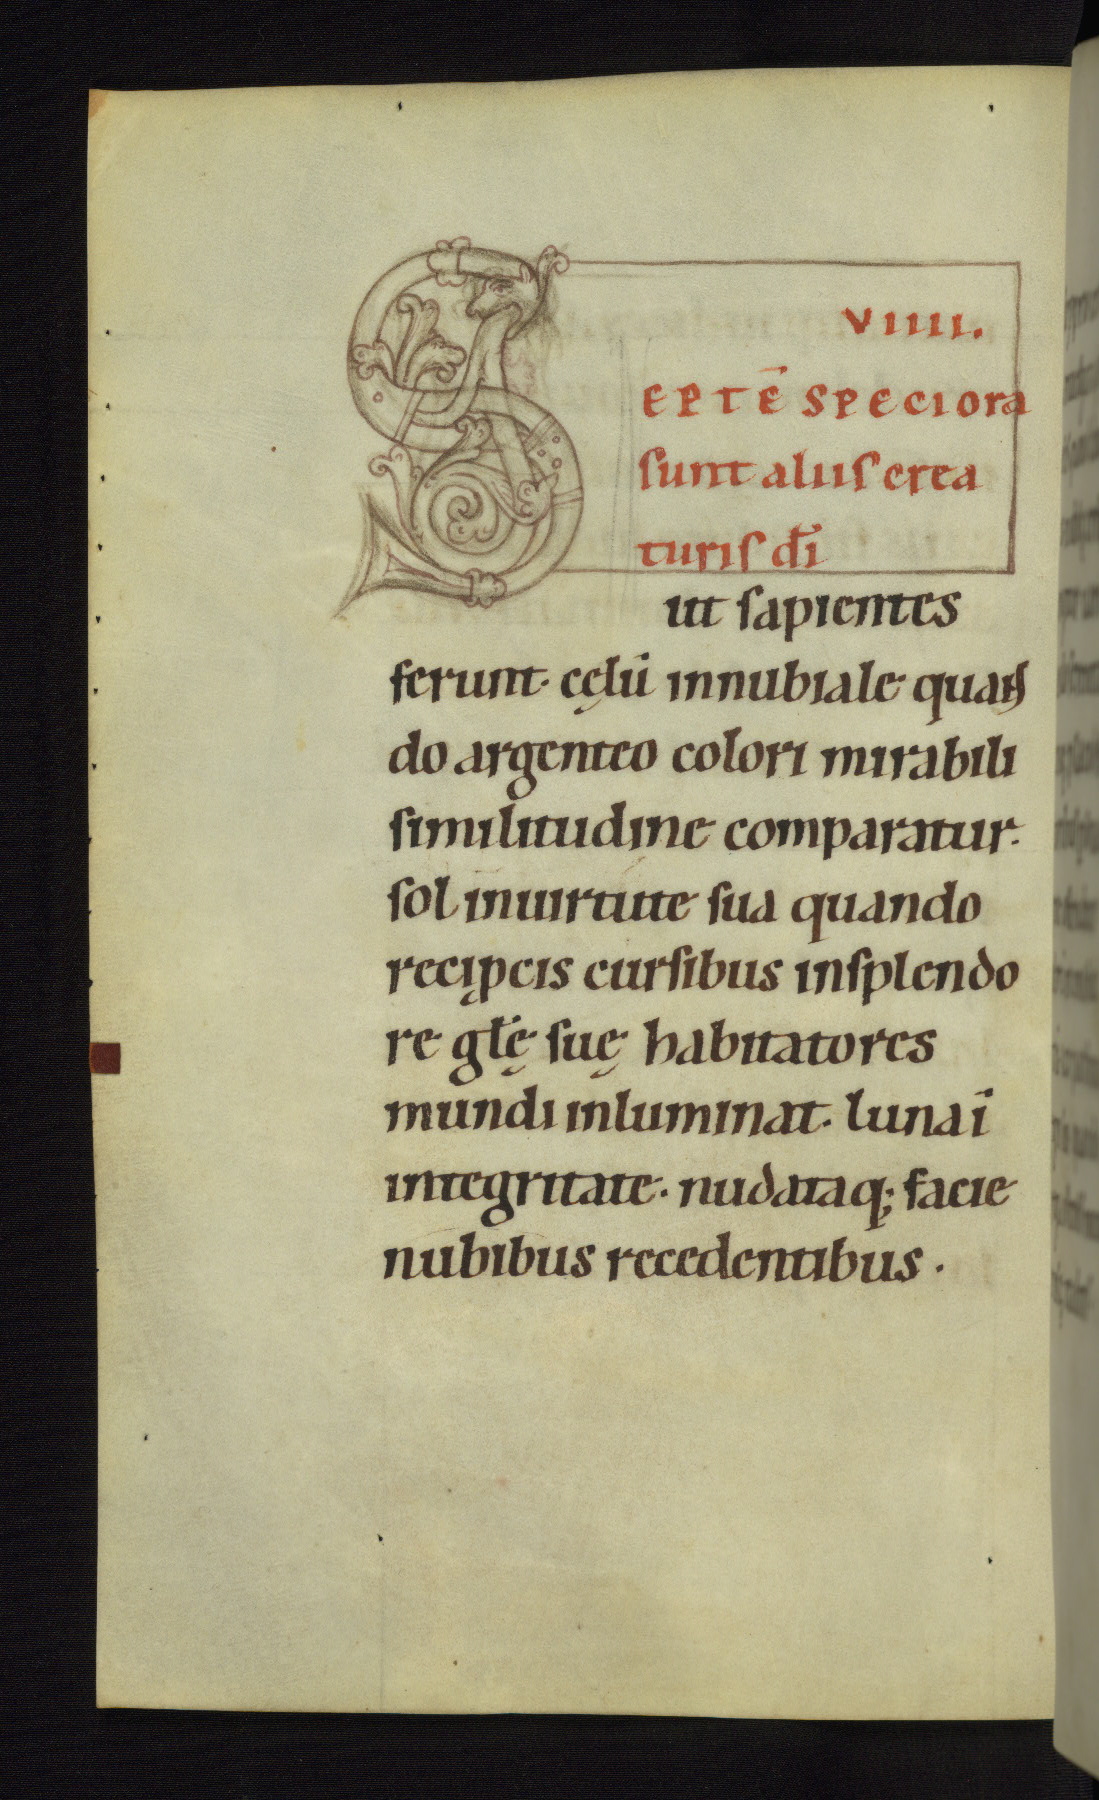 VIIII.
SEPTĒ SPECIORA
sunt aliis crea
turis dī
ut sapientes
ferunt. cęlū innubiale quan
do argenteo colori mirabili
similitudine comparatur.
sol inuirtute sua quando
recipcis cursibus insplendo
re glę suę habitatores
mundi inluminat. luna ī
integritate. nudataq; facie
nubibus recedentibus.